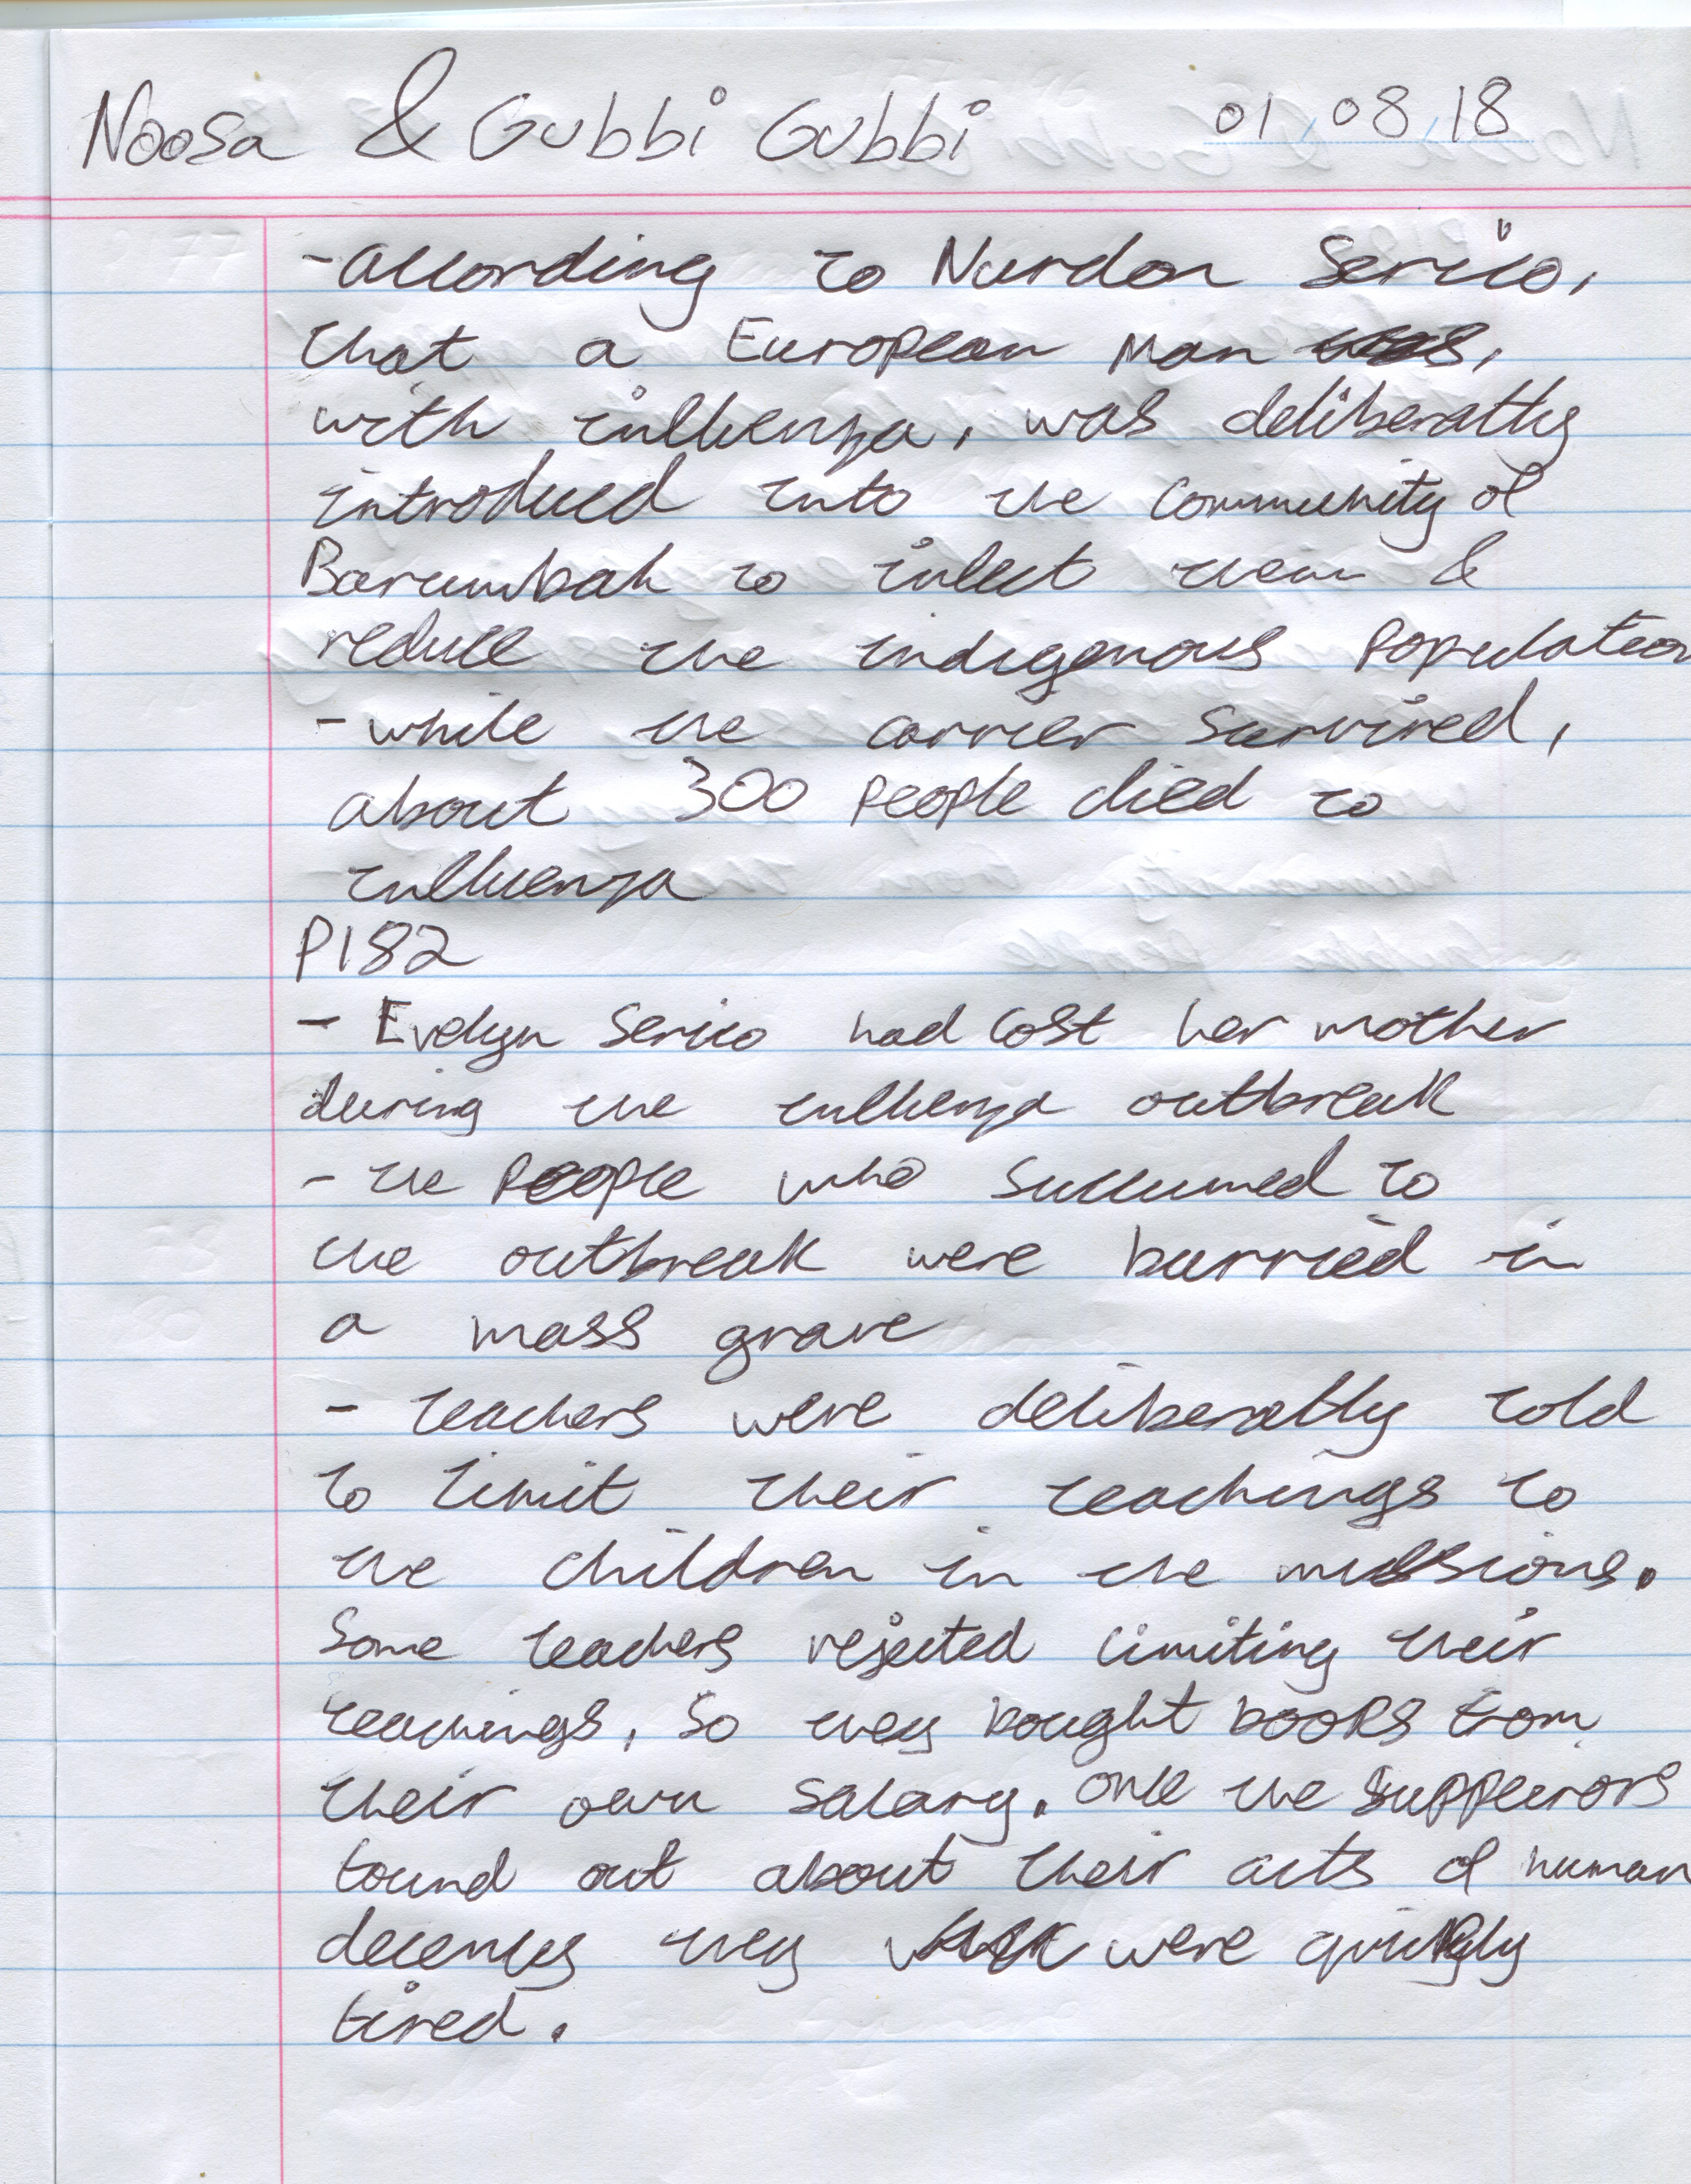 Noosa & Gubbi Gubbi 01/08/18
- according to Nurdon Serico,
that a European man was,
with influenza, was deliberatly
introduced into the community of
Barumbah to infect them &
reduce the indigenous population
- while the carrier survived,
about 300 people died to
influenza
P182
- Evelyn Serico had lost her mother
during the influenza outbreak
- the people who succumed to
the outbreak were burried in
a mass grave
- teachers were deliberatly told
to limit their teachings to
the children in the missions.
Some teachers rejected limiting their
teachings, so they bought books from
their own salary. once the suppeurors
found out about their acts of human
decency they were quickly
fired.